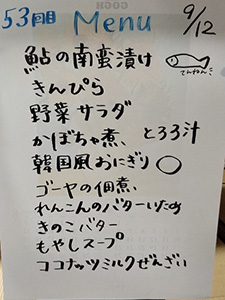 53回目 Menu 9/12
鮎の南蛮漬け
きんぴら
野菜サラダ
かぼちゃ煮、とろろ汁
韓国風おにぎり
ゴーヤの佃煮、
れんこんのバターしょうゆ炒め
きのこバター
もやしスープ
ココナッツミルクぜんざい